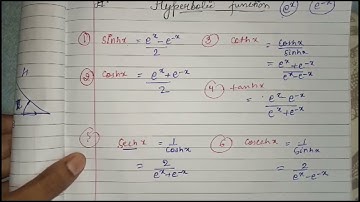 Hyperbolic function e^x e^-x
① sinhx = e^x - e^-x / 2
② coshx = e^x + e^-x / 2
③ cothx = coshx / sinhx
= e^x + e^-x / e^x - e^-x
④ tanhx
= e^x - e^-x / e^x + e^-x
⑤ sechx = 1 / coshx
= 2 / e^x + e^-x
⑥ cosechx = 1 / sinhx
= 2 / e^x - e^-x